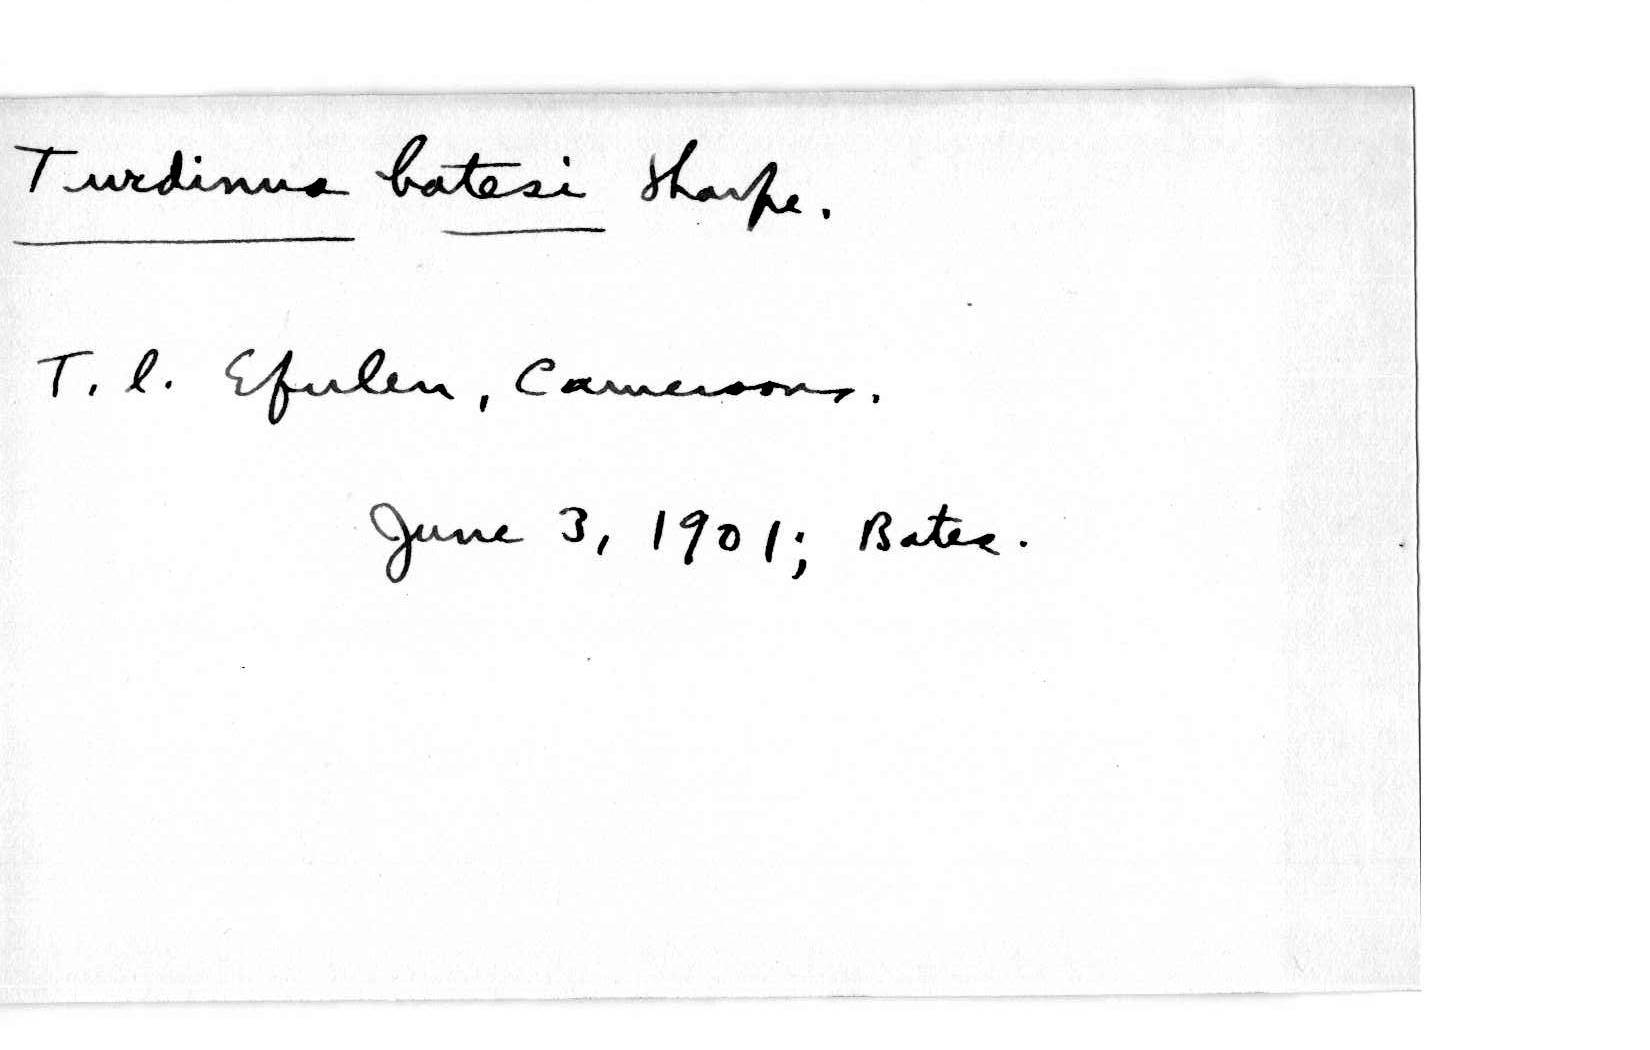 Turdinus batesi Sharpe.
T. l. Efulen, Cameroons.
June 3, 1901; Bates.